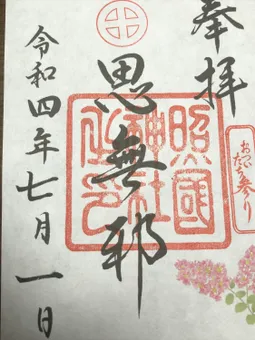 奉拝
思無邪
照國神社之印
おついたち参り
令和四年七月一日